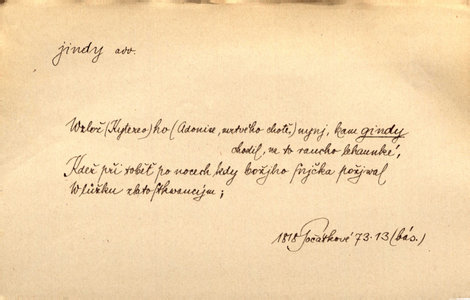 jindy adv.
Wzlož (Kytereo) ho (Adonise, mrtvého chotě) nynj, kam gindy
chodil, na to raucho lehaunké,
Kdež při tobě po nocech kdy božjho snjčka požjwal
W lůžku zlatostkwaucým;
1818 Počátkowé 73.13 (bás.)